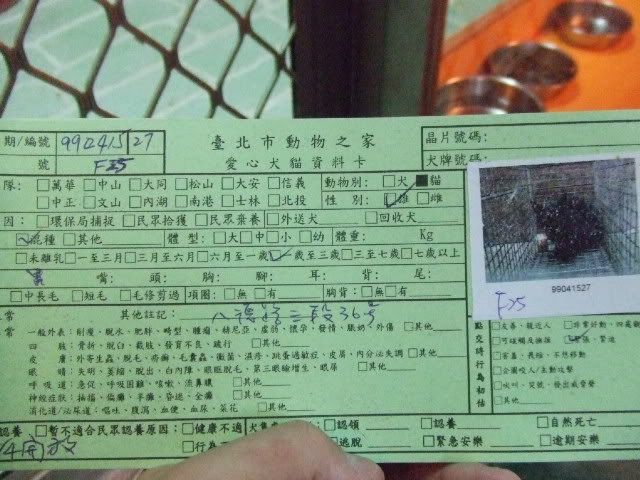 期/編號 990415/27 臺北市動物之家 晶片號碼:
號 F25 愛心犬貓資料卡 犬牌號碼:
隊: □萬華 □中山 □大同 □松山 □大安 □信義 動物別: □犬 ■貓
□中正 □文山 □內湖 □南港 □士林 □北投 性別: □雄 □雌
因: □環保局捕捉 □民眾拾獲 □民眾棄養 □外送犬 □回收犬
□混種 □其他 體型: □大□中□小□幼 體重: Kg
□未離乳 □一至三月 □三月至六月 □六月至一歲 □一歲至三歲 □三至七歲 □七歲以上
嘴: 頭: 胸: 腳: 耳: 背: 尾:
□中長毛 □短毛 □毛修剪過 項圈: □無□有 胸背: □無□有
99041527
F25
常 其他註記: 八德路三段36號
常 一般外表: 削瘦、脫水、肥胖、畸型、腫瘤、赫尼亞、虛弱、懷孕、發情、脹奶、外傷 □其他
四肢: 骨折、脫臼、截肢、發育不良、跛行 □其他
皮膚: 外寄生蟲、脫毛、疥癬、毛囊蟲、黴菌、濕疹、跳蚤過敏症、皮屑、內分泌失調 □其他
眼睛: 失明、萎縮、脫出、白內障、眼眶脫毛、第三眼瞼增生、眼屎 □其他
呼吸道: 急促、呼吸困難、咳嗽、流鼻膿 □其他
神經症狀: 抽搐、偏癱、半癱、昏迷、全癱 □其他
消化道/泌尿道: 嘔吐、腹瀉、血便、血尿、菜花 □其他
點交時行為初估
□友善、親近人 □非常好動、四處觀
□可碰觸及擁抱 □緊張、緊迫
□害羞、畏縮、不想移動
□企圖咬人/主動攻擊
□吠叫、哭號、發出威脅聲
□其他
認養、□暫不適合民眾認養原因: □健康不適 □認領 □認養 □自然死亡
□行為 □逃脫 □緊急安樂 □逾期安樂